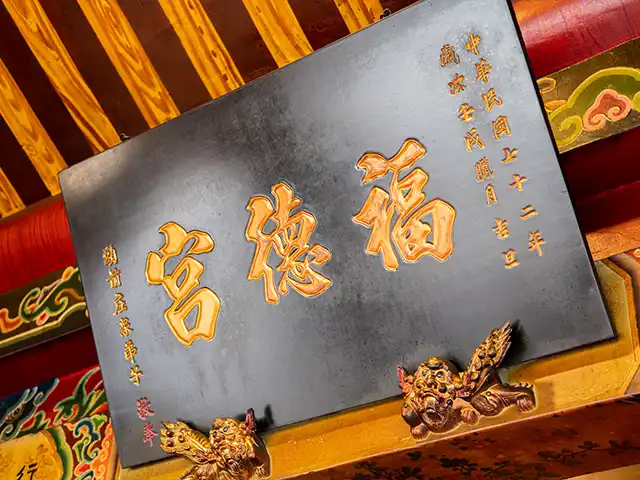 中華民國七十二年
歲次壬戌臘月 吉旦
福德宮
前庄眾弟子 敬奉
行